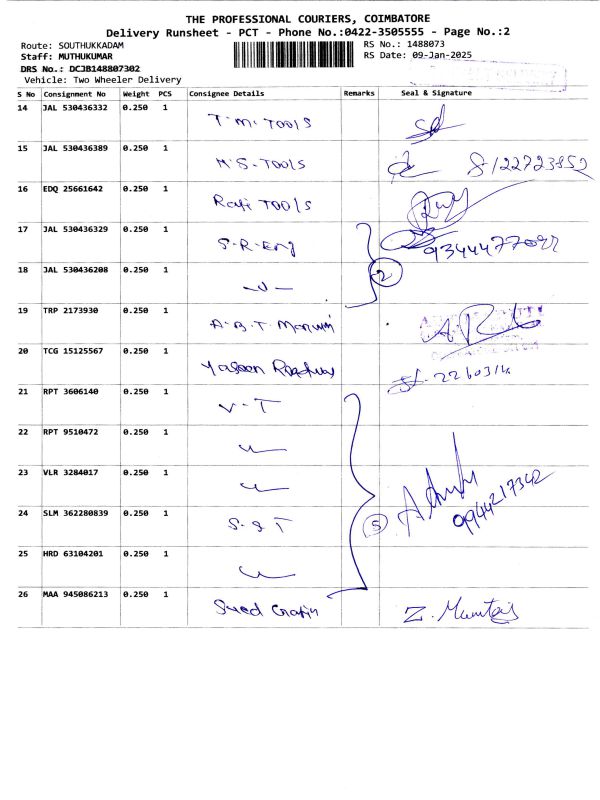 THE PROFESSIONAL COURIERS, COIMBATORE
Delivery Runsheet - PCT - Phone No.:0422-3505555 - Page No.:2
Route: SOUTHUKKADAM RS No.: 1488073
Staff: MUTHUKUMAR RS Date: 09-Jan-2025
DRS No.: DCJB148807302
Vehicle: Two Wheeler Delivery
S No Consignment No Weight PCS Consignee Details Remarks Seal & Signature
14 JAL 530436332 0.250 1 T.M. TOOLS
15 JAL 530436389 0.250 1 M.S-TOOLS
16 EDQ 25661642 0.250 1 Rafi TOOLS
17 JAL 530436329 0.250 1 S-R-Eng
18 JAL 530436208 0.250 1 2
19 TRP 2173930 0.250 1 A.B.T
20 TCG 15125567 0.250 1 Yaseen Roadways
21 RPT 3606140 0.250 1 V-T
22 RPT 9510472 0.250 1
23 VLR 3284017 0.250 1 9944217342
24 SLM 362280839 0.250 1 S-S T 5
25 HRD 63104201 0.250 1
26 MAA 945086213 0.250 1 Syed Z. Mumtaj